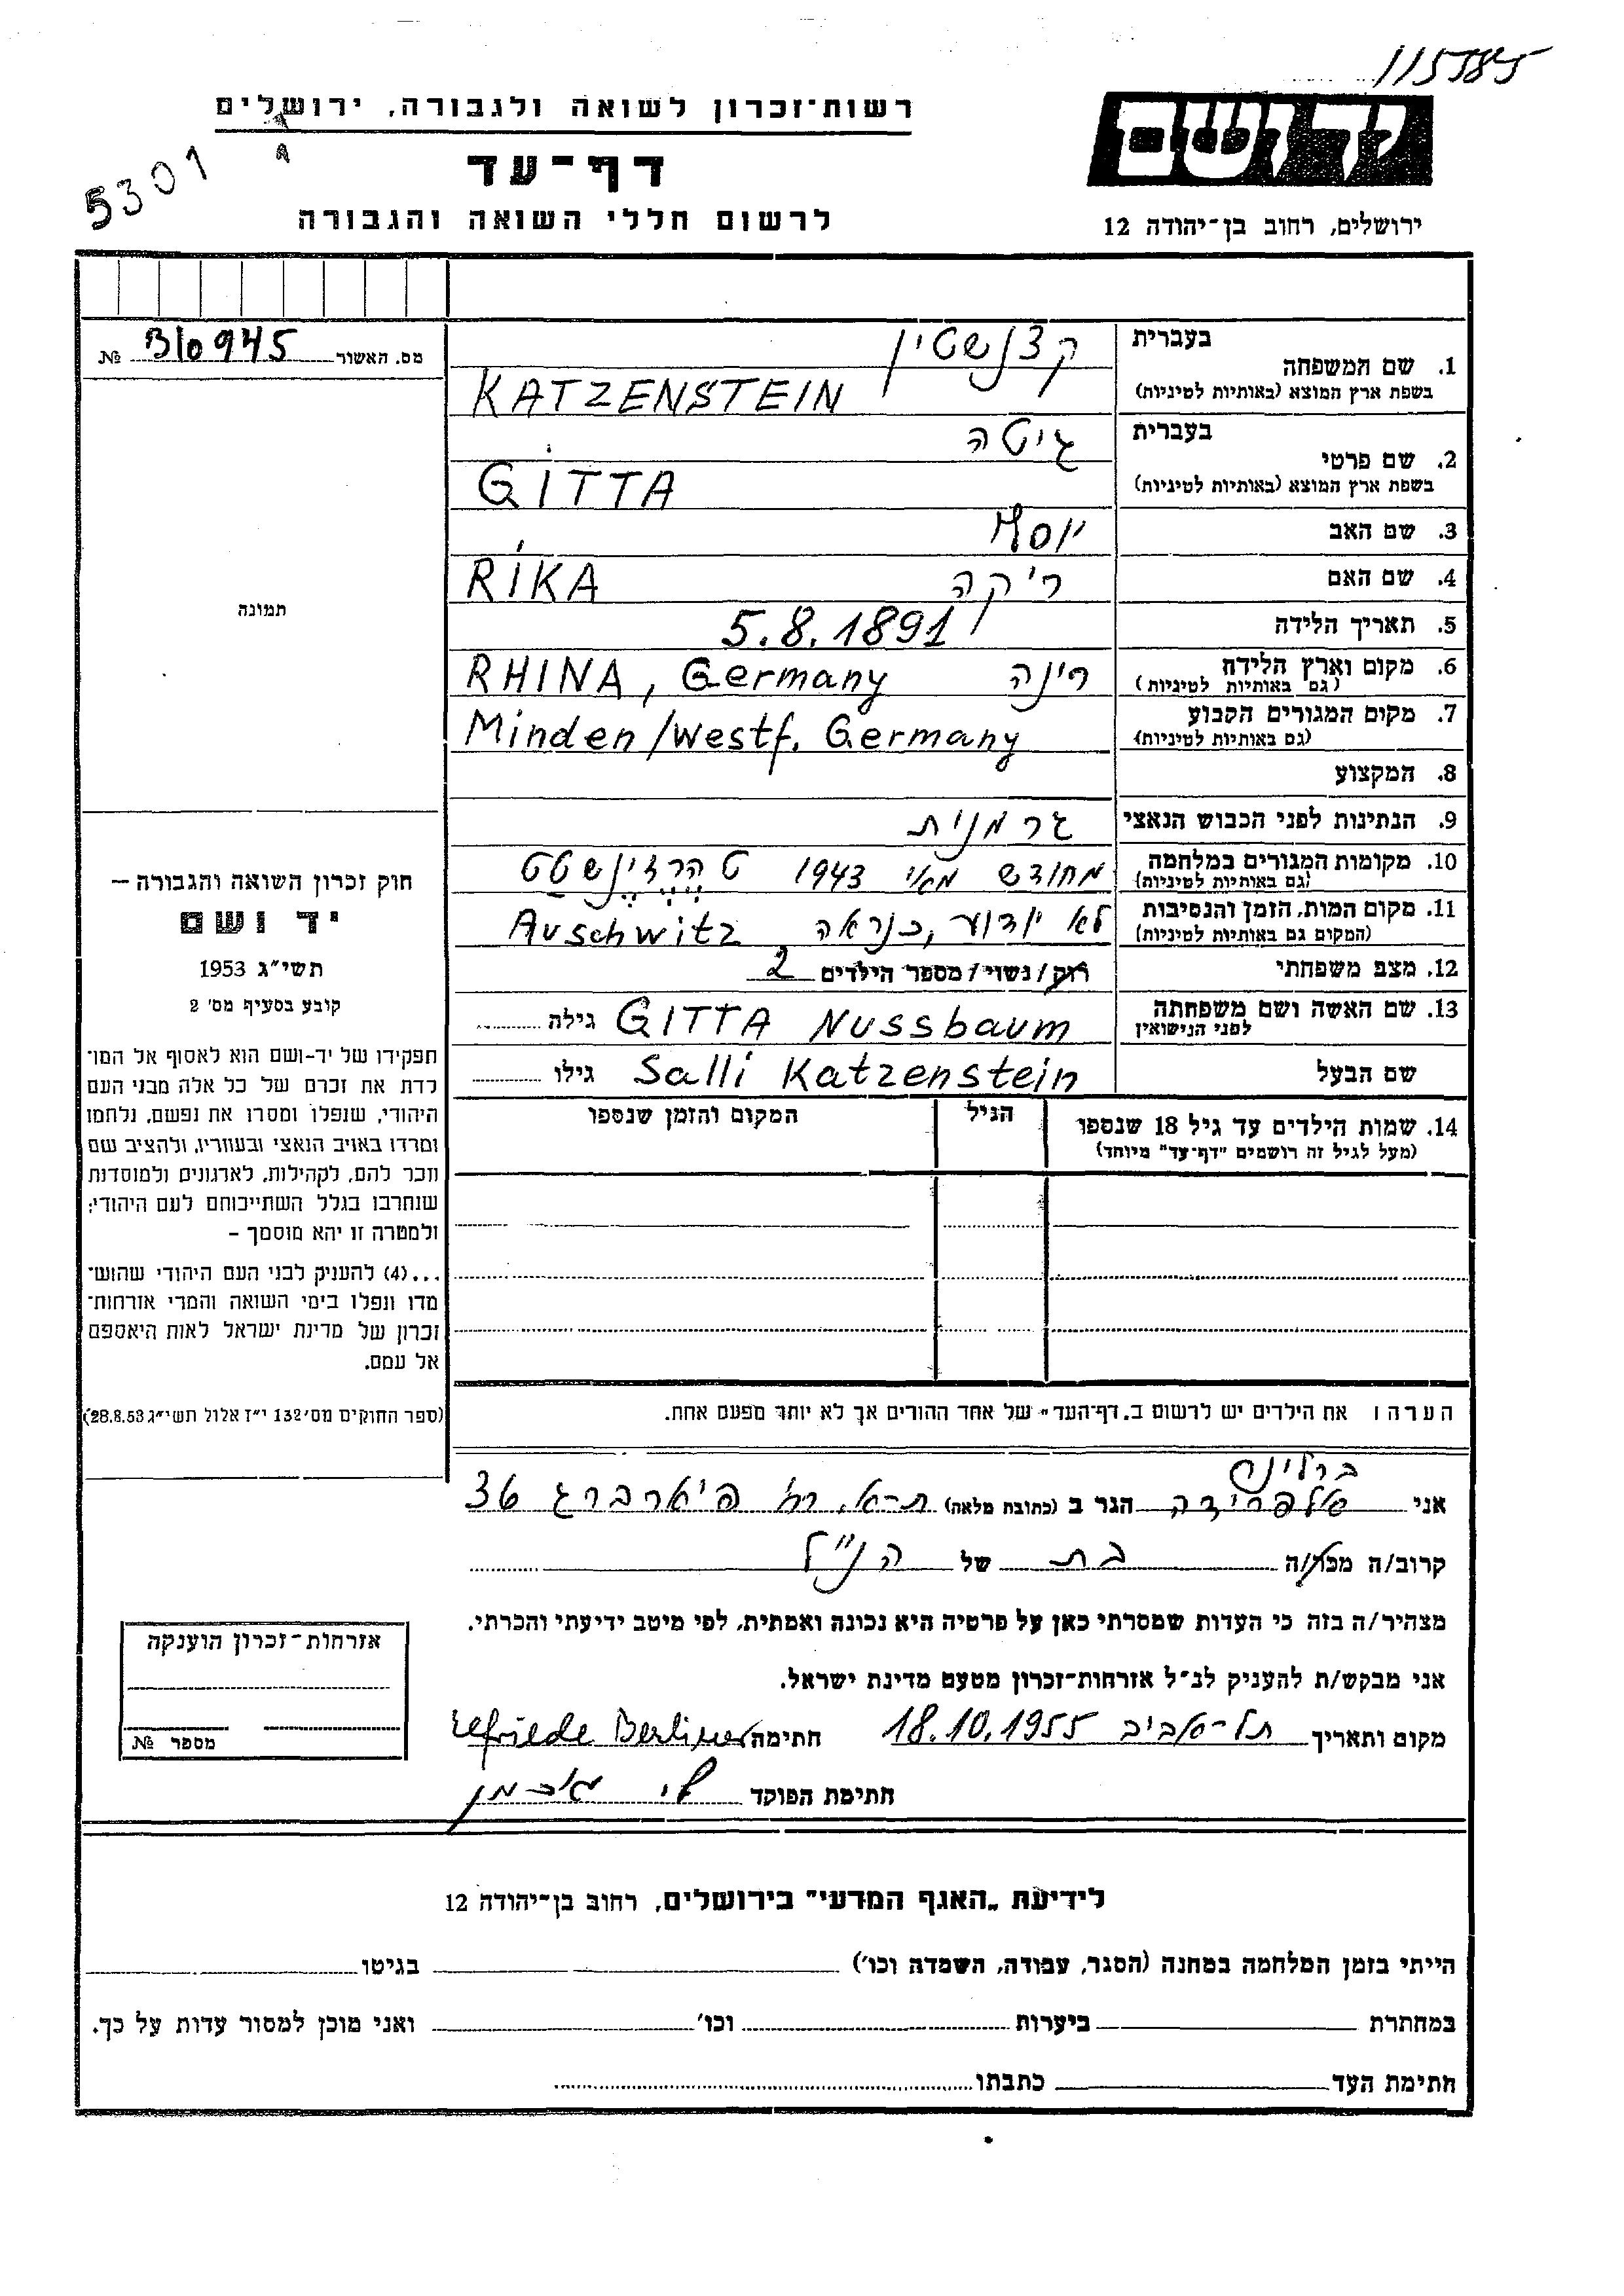 115585
רשות-זכרון לשואה ולגבורה, ירושלים
דף-עד
לרשום חללי השואה והגבורה
5301
יד ושם
ירושלים, רחוב בן-יהודה 12
מס. האשור B/0945 №
בעברית קצנשטין
1. שם המשפחה
בשפת ארץ המוצא (באותיות לטיניות) KATZENSTEIN
בעברית גיטה
2. שם פרטי
בשפת ארץ המוצא (באותיות לטיניות) GITTA
3. שם האב יוסף
4. שם האם ריקה RIKA
5. תאריך הלידה 5.8.1891
6. מקום וארץ הלידה רינה RHINA, Germany
(גם באותיות לטיניות)
7. מקום המגורים הקבוע Minden/Westf. Germany
(גם באותיות לטיניות)
8. המקצוע
9. הנתינות לפני הכבוש הנאצי גרמנית
10. מקומות המגורים במלחמה מחודש מאי 1943 טהרזיינשטט
(גם באותיות לטיניות)
11. מקום המות, הזמן והנסיבות לא ידוע, כנראה Auschwitz
(המקום גם באותיות לטיניות)
12. מצב משפחתי רוק/נשוי/מספר הילדים 2
13. שם האשה ושם משפחתה GITTA Nussbaum גילה
לפני הנישואין
שם הבעל Salli Katzenstein גילו
14. שמות הילדים עד גיל 18 שנספו הגיל המקום והזמן שנספו
(מעל לגיל זה רושמים "דף-עד" מיוחד)
הערה: את הילדים יש לרשום ב"דף-העד" של אחד ההורים אך לא יותר מפעם אחת.
תמונה
חוק זכרון השואה והגבורה –
יד ושם
תשי"ג 1953
קובע בסעיף מס' 2
תפקידו של יד-ושם הוא לאסוף אל המו־
לדת את זכרם של כל אלה מבני העם
היהודי, שנפלו ומסרו את נפשם, נלחמו
ומרדו באויב הנאצי ובעוזריו, ולהציב שם
וזכר להם, לקהילות, לארגונים ולמוסדות
שנחרבו בגלל השתייכותם לעם היהודי;
ולמטרה זו יהא מוסמך –
...(4) להעניק לבני העם היהודי שהוש־
מדו ונפלו בימי השואה והמרי אזרחות-
זכרון של מדינת ישראל לאות היאספם
אל עמם.
(ספר החוקים מס' 132 י"ז אלול תשי"ג 28.8.53)
ברלינר
אני אלפרידה הגר ב (כתובת מלאה) ת-א, רח' פיארברג 36
קרוב/ה מכר/ה בת של הנ"ל
מצהיר/ה בזה כי העדות שמסרתי כאן על פרטיה היא נכונה ואמתית, לפי מיטב ידיעתי והכרתי.
אני מבקש/ת להעניק לנ"ל אזרחות-זכרון מטעם מדינת ישראל.
מקום ותאריך תל-אביב 18.10.1955 חתימה Elfriede Berliner
חתימת הפוקד
אזרחות-זכרון הוענקה
מספר №
לידיעת "האגף המדעי" בירושלים, רחוב בן-יהודה 12
הייתי בזמן המלחמה במחנה (הסגר, עבודה, השמדה וכו') בגיטו
במחתרת ביערות וכו' ואני מוכן למסור עדות על כך.
חתימת העד כתבתו